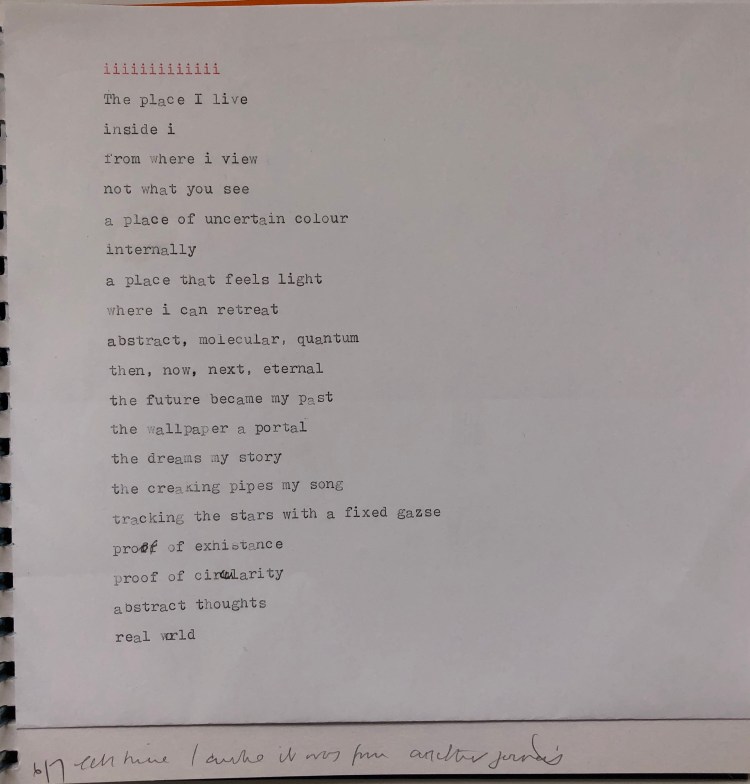 iiiiiiiiiiiii
The place I live
inside i
from where i view
not what you see
a place of uncertain colour
internally
a place that feels light
where i can retreat
abstract, molecular, quantum
then, now, next, eternal
the future became my past
the wallpaper a portal
the dreams my story
the creaking pipes my song
tracking the stars with a fixed gazse
proof of exhistance
proof of circularity
abstract thoughts
real world
it was